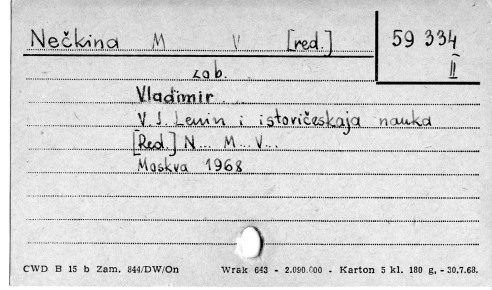 Nečkina M V [red.] 59 334
II
zob.
Vladimir
V. I. Lenin i istoričeskaja nauka
[Red.] N... M... V...
Moskva 1968
CWD B 15 b Zam. 844/DW/On Wrak 643 - 2.090.000 - Karton 5 kl. 180 g. - 30.7.68.